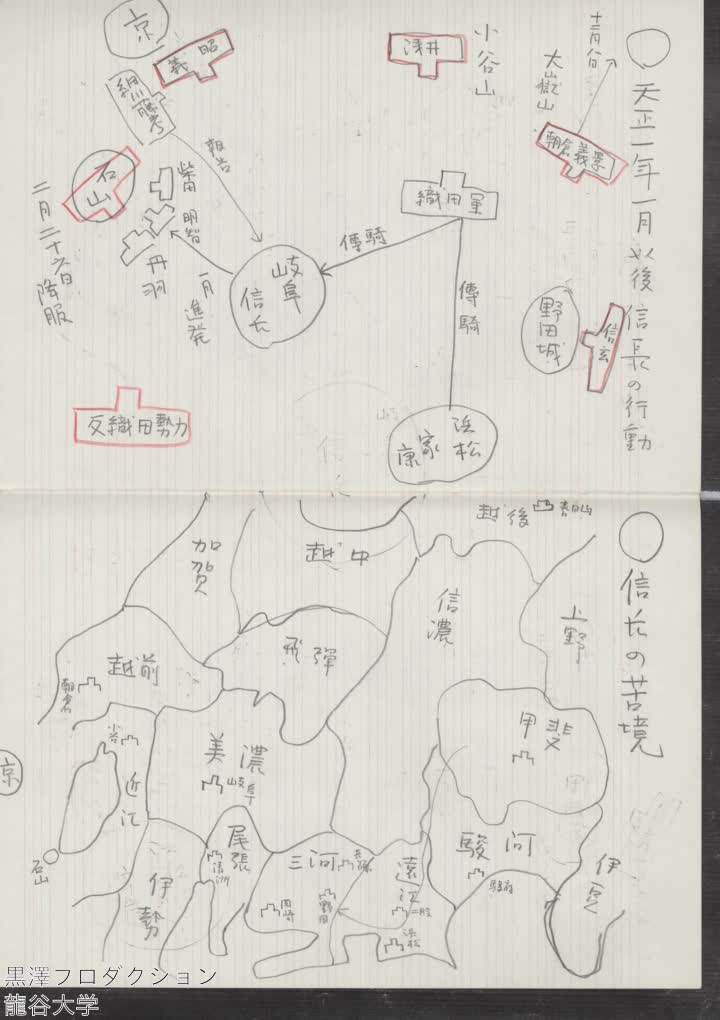 ○ 天正一年一月以後 信長の行動
十二月白
大嶽山
朝倉義景
小谷山
浅井
京
義昭
細川藤孝
報告
石山
二月二十六日 降服
柴田
明智
丹羽
一月 進発
岐阜
信長
織田軍
傳騎
傳騎
野田城
信玄
浜松
家康
反織田勢力
○ 信長の苦境
越後
春日山
上野
加賀
越中
信濃
飛弾
越前
朝倉
甲斐
小谷
近江
美濃
岐阜
京
石山
伊勢
尾張
清洲
三河
岡崎
野田
遠江
二俣
浜松
駿河
駿府
伊豆
黒澤プロダクション
龍谷大学